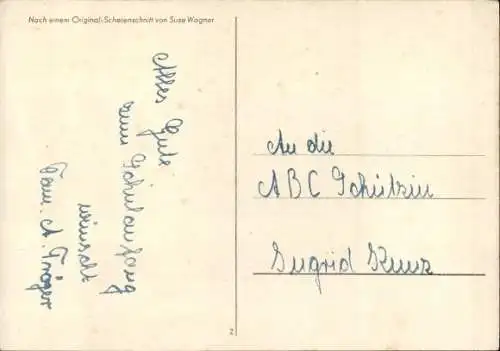 Nach einem Original-Scherenschnitt von Suse Wagner
Alles Gute
zum Schulanfang
wünscht
Fam. A. Träger
An die
ABC Schützin
Ingrid Kunz
2